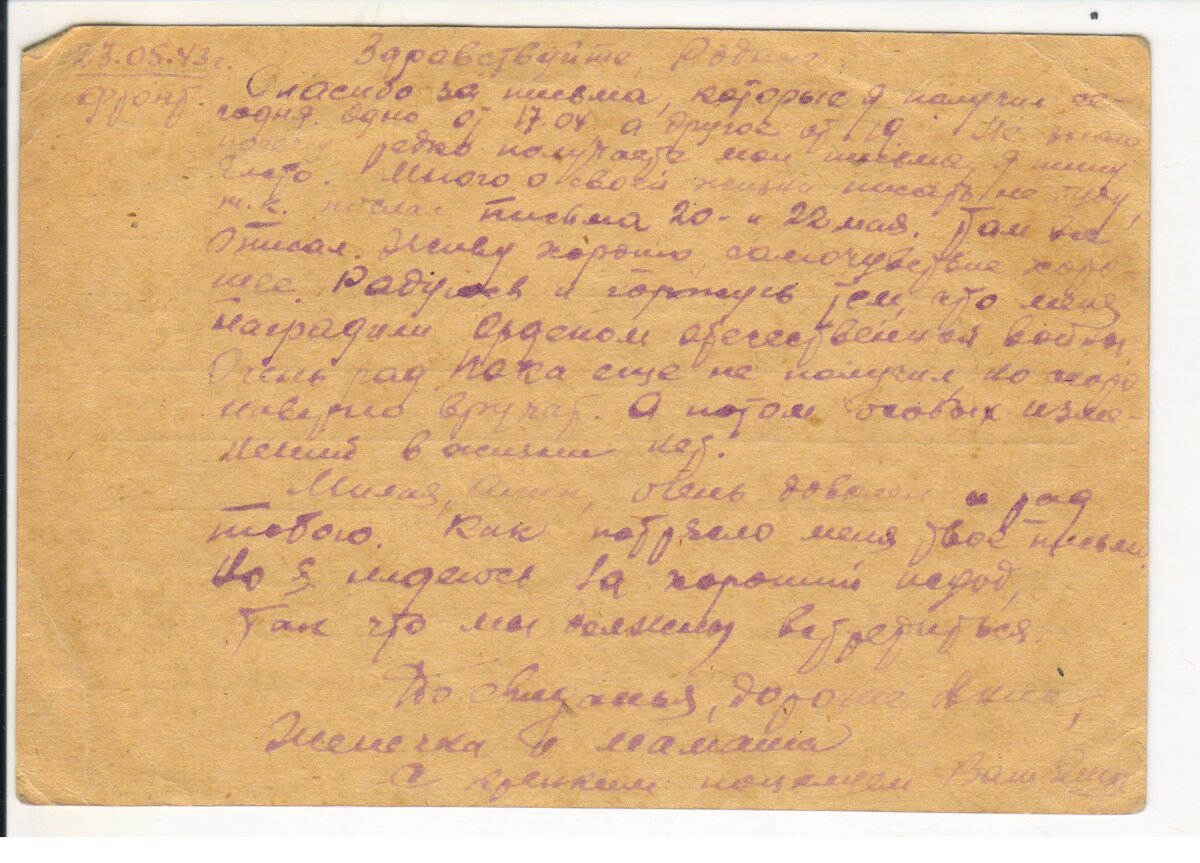 27.05.43 г. Здравствуйте, Родные.
фронт. Спасибо за письма, которые я получил се-
годня. Одно от 17.04 а другое от 19 Не знаю
почему редко получаете мои письма, я пишу
часто. Много о своей жизни писать не буду,
т.к. послал письма 20- и 22 мая. Там все
описал. Живу хорошо, самочувствие хоро-
шее. Радуюсь и горжусь тем, что меня
наградили Орденом отечественной войны.
Очень рад Пока еще не получил, но скоро
наверно вручат. А потом особых изме-
нений в жизни нет.
Милая, очень доволен и рад
тобою. Как потрясло меня твое письмо.
Но я надеюсь на хороший исход,
Так что мы должны встретиться.
До свиданья, дорогие
Женечка и мамаша
С крепким поцелуем Ваш